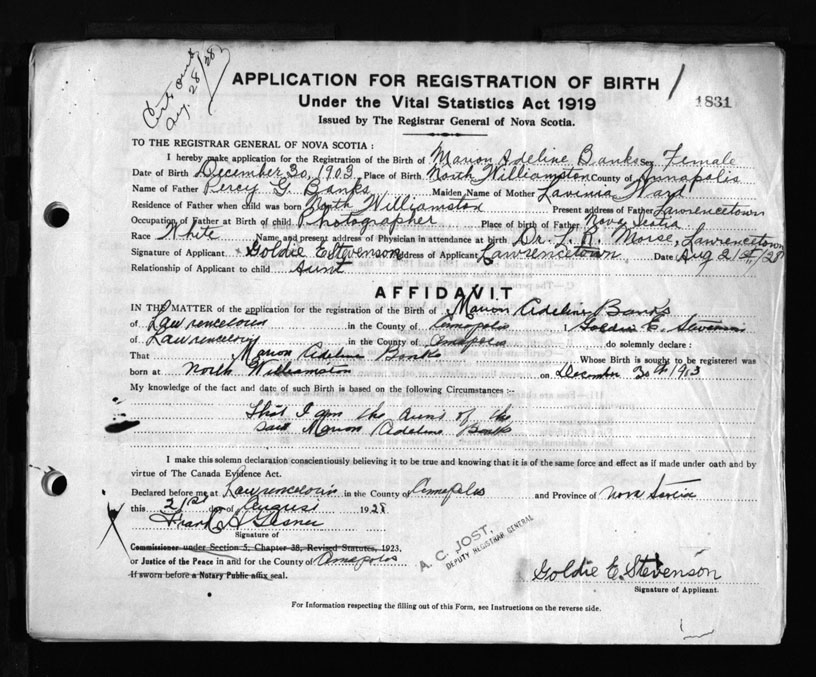 Cert out
Aug. 28/28
APPLICATION FOR REGISTRATION OF BIRTH
1831
Under the Vital Statistics Act 1919
Issued by The Registrar General of Nova Scotia.
TO THE REGISTRAR GENERAL OF NOVA SCOTIA :
I hereby make application for the Registration of the Birth of Marion Adeline Banks Sex Female
Date of Birth December 30, 1903 Place of Birth North Williamston County of Annapolis
Name of Father Percy G. Banks Maiden Name of Mother Lavinia Ward
Residence of Father when child was born North Williamston Present address of Father Lawrencetown
Occupation of Father at Birth of child Photographer Place of birth of Father Nova Scotia
Race White Name and present address of Physician in attendance at birth Dr. L. R. Morse, Lawrencetown
Signature of Applicant Goldie E. Stevenson Address of Applicant Lawrencetown Date Aug 21st/28
Relationship of Applicant to child Aunt
AFFIDAVIT
IN THE MATTER of the application for the registration of the Birth of Marion Adeline Banks
of Lawrencetown in the County of Annapolis Goldie E. Stevenson
of Lawrencetown in the County of Annapolis do solemnly declare :
That Marion Adeline Banks Whose Birth is sought to be registered was
born at North Williamston on December 30th 1903
My knowledge of the fact and date of such Birth is based on the following Circumstances :-
That I am the Aunt of the
said Marion Adeline Banks
I make this solemn declaration conscientiously believing it to be true and knowing that it is of the same force and effect as if made under oath and by
virtue of The Canada Evidence Act.
Declared before me at Lawrencetown in the County of Annapolis and Province of Nova Scotia
this 21st day of August 1928
Frank H Gesner
Signature of
Commissioner under Section 5, Chapter 38, Revised Statutes, 1923,
or Justice of the Peace in and for the County of Annapolis
If sworn before a Notary Public affix seal.
A. C. JOST,
DEPUTY REGISTRAR GENERAL
Goldie E. Stevenson
Signature of Applicant.
For Information respecting the filling out of this Form, see Instructions on the reverse side.